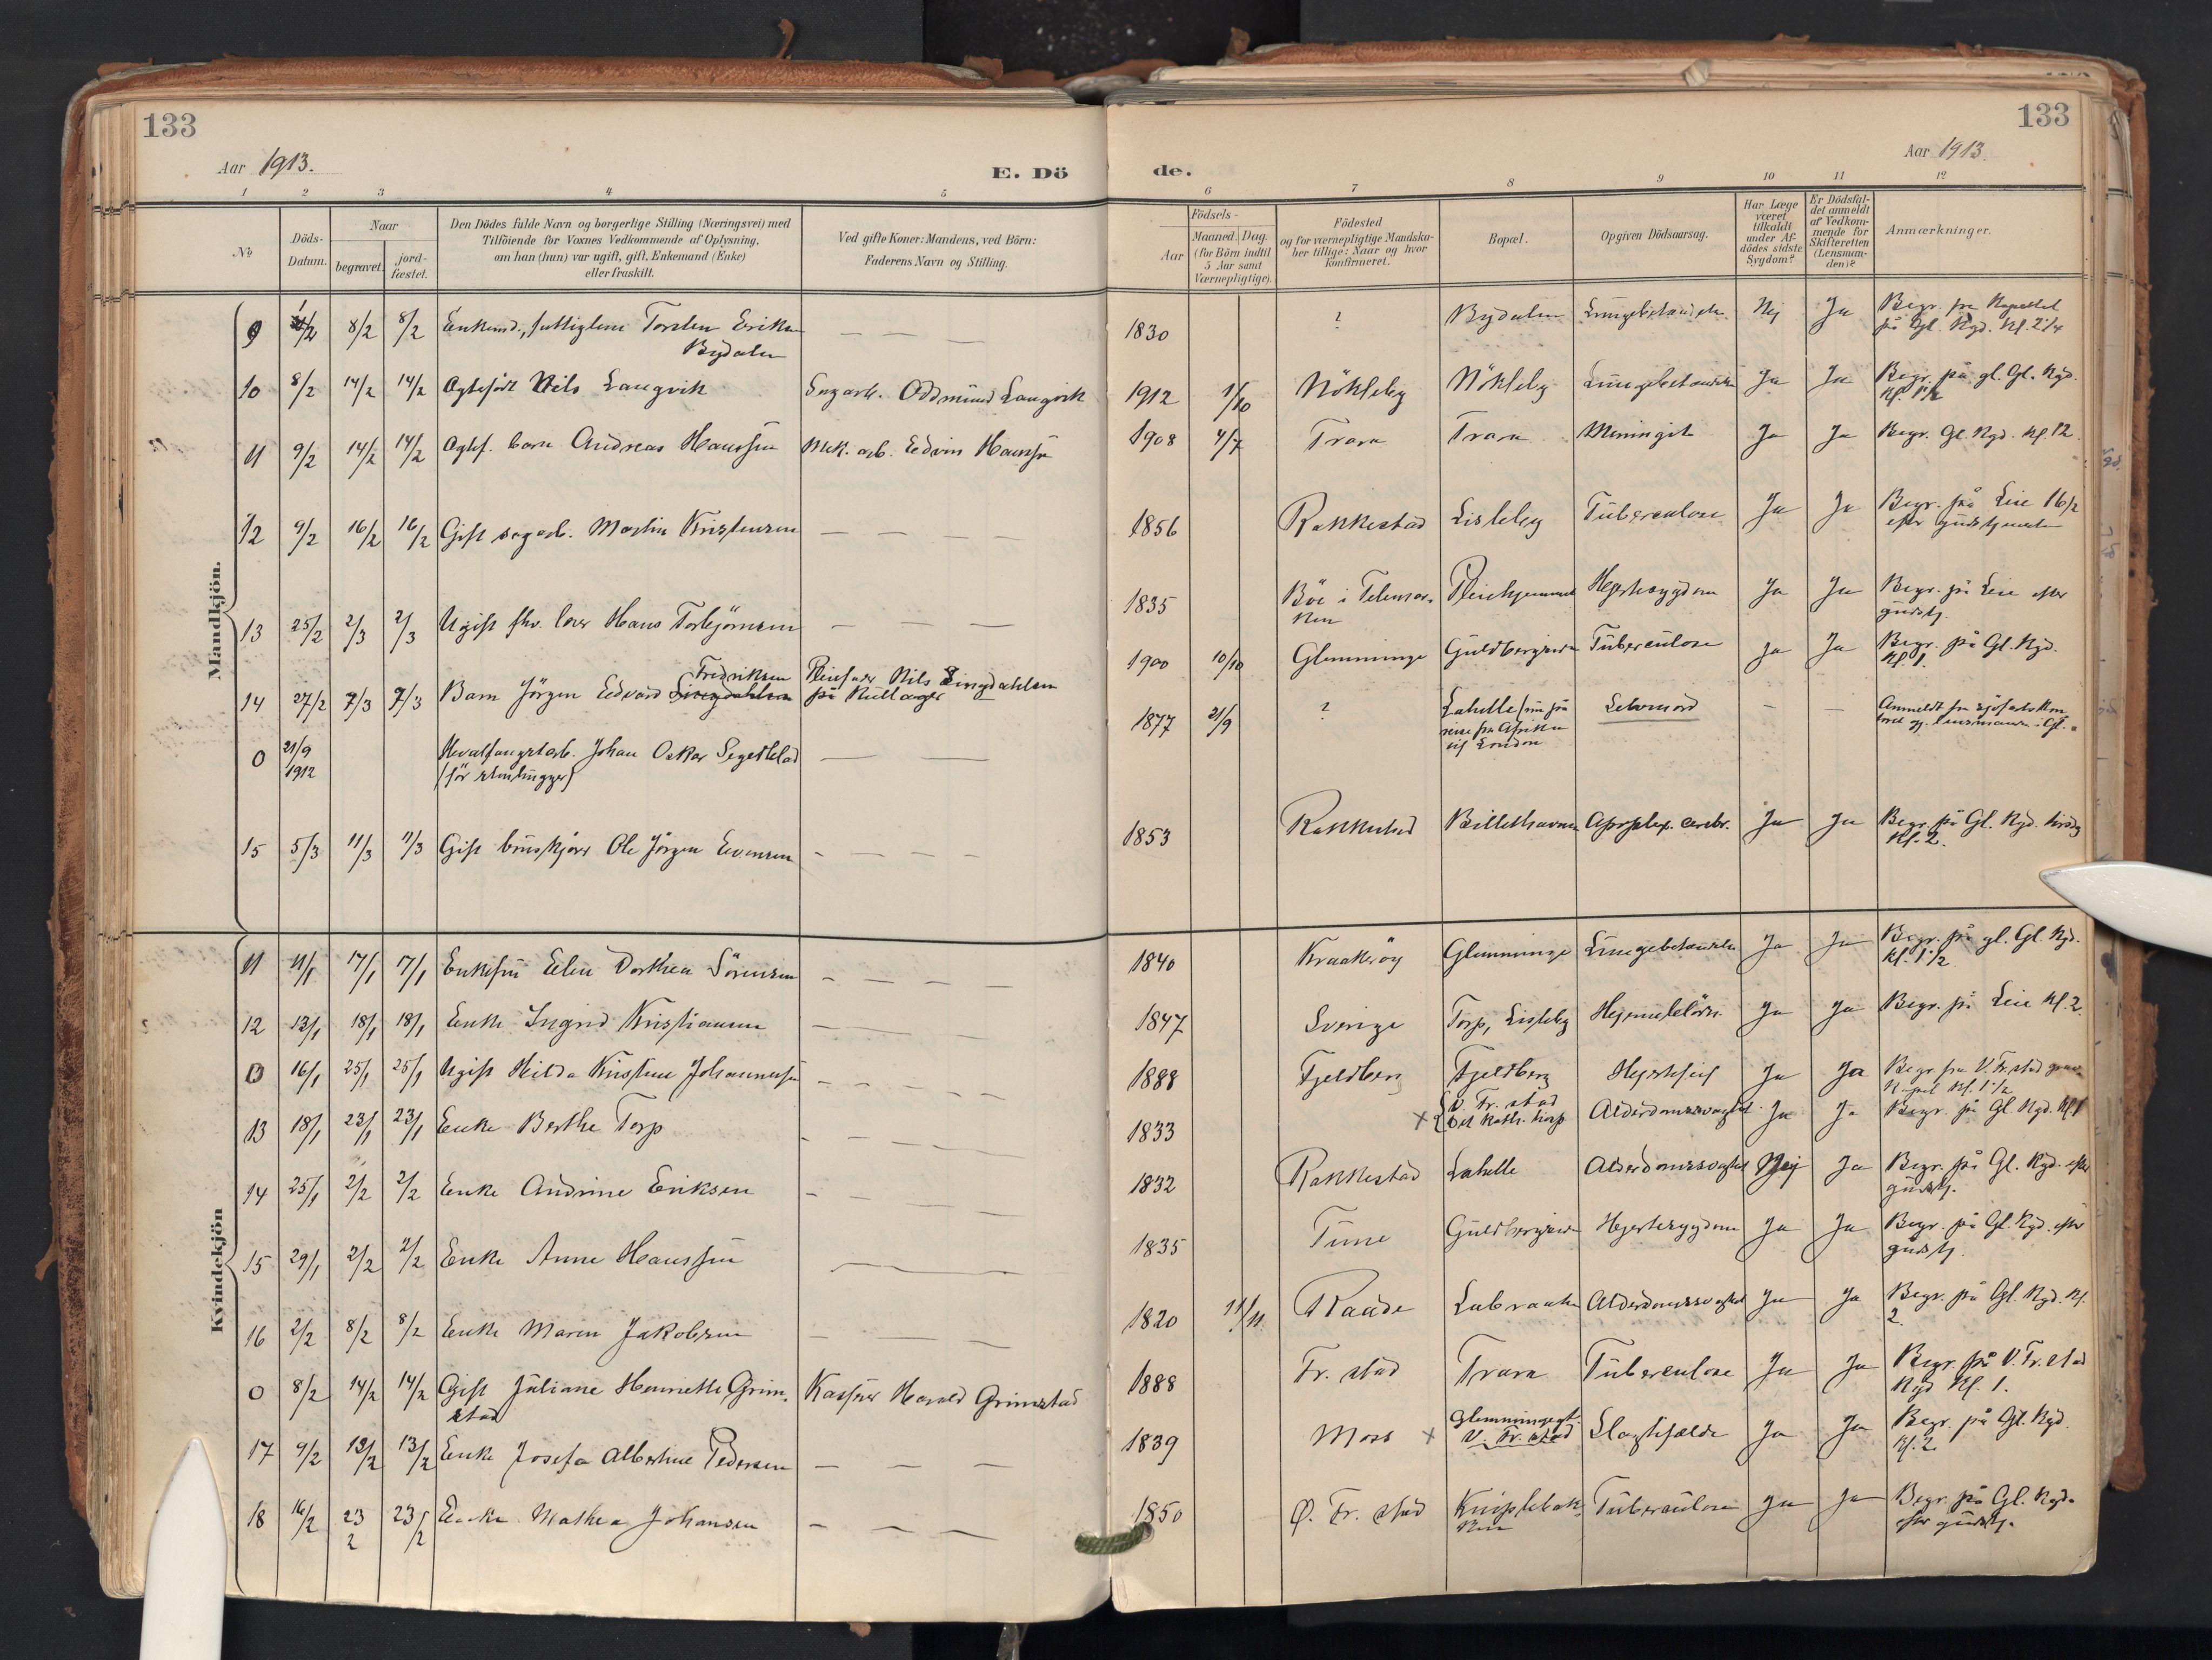 133
Aar 1913.
E. Dö
1 2 3 4 5
№
Döds-
Datum.
Naar
begravet.
jord-
fæstet.
Den Dödes fulde Navn og borgerlige Stilling (Næringsvei) med
Tilföiende for Voxnes Vedkommende af Oplysning,
om han (hun) var ugift, gift, Enkemand (Enke)
eller fraskilt.
Ved gifte Koner: Mandens, ved Börn:
Faderens Navn og Stilling.
Mandkjön.
9 1/2 8/2 8/2 Enkemd., fattiglem Torsten Eriksen — — —
Bydalen
10 8/2 14/2 14/2 Ægtefödt Nils Langvik Sagarb. Oddmund Langvik
11 9/2 14/2 14/2 Ægtef. barn Andreas Hanssen Mek. arb. Edvin Hanssen
12 9/2 16/2 16/2 Gift sagarb. Martin Kristensen — — — —
13 25/2 2/3 2/3 Ugift fhv. Hans Torbjörnsen — — —
Fredriksen Pleiefader Nils Lingdahlen
14 27/2 7/3 7/3 Barn Jörgen Edvard Lingdahlen på Rullager
0 21/9 1912 Hvalfangstarb. Johan Oskar Segerblad — —
(för stenhugger)
15 5/3 11/3 11/3 Gift Ole Jörgen Evensen — — — —
Kvindekjön
11 11/1 17/1 17/1 Enkefru Elen Dorthea Sörensen — — — —
12 13/1 18/1 18/1 Enke Ingrid Kristiansen — — — —
0 16/1 25/1 25/1 Ugift Hilda Kristine Johannesen — — — —
13 18/1 23/1 23/1 Enke Berthe Torp — — — —
14 25/1 2/2 2/2 Enke Andrine Eriksen — — — —
15 29/1 2/2 2/2 Enke Anne Hanssen —
16 2/2 8/2 8/2 Enke Maren Jakobsen — — —
0 8/2 14/2 14/2 Gift Juliane Henriette Grim- Kaspar Harald Grimstad
stad
17 9/2 13/2 13/2 Enke Josefa Albertine Pedersen — — —
18 16/2 23/2 23/2 Enke Mathea Johansen — — —
133
Aar 1913.
de.
6 7 8 9 10 11 12
Födsels-
Aar
Maaned. Dag.
(for Börn indtil
5 Aar samt
Værnepligtige).
Födested
og for værnepligtige Mandska-
ber tillige: Naar og hvor
konfirmeret.
Bopæl.
Opgiven Dödsaarsag.
Har Læge
været
tilkaldt
under Af-
dödes sidste
Sygdom?
Er Dödsfal-
det anmeldt
af Vedkom-
mende for
Skifteretten
(Lensman-
den)?
Anmærkninger.
1830 ? Bydalen Lungebetændelse Nej Ja Begr. fra Kapellet
på Gl. Kgd. Kl. 2 1/4
1912 1/10 Nökleby Nökleby Lungebetændelse Ja Ja Begr. på gl. Gl. Kgd.
Kl. 1 1/2
1908 4/7 Trara Trara Meningit Ja Ja Begr. Gl. Kgd. Kl. 12.
1856 Rakkestad Lisleby Tuberculose Ja Ja Begr. på Leie 16/2
efter gudstjenesten
1835 Böe i Telemar- Pleiehjemmet Hjertesygdom Ja Ja Begr. på Leie efter
ken gudstj.
1900 10/10 Glemminge Guldbergsen Tuberculose Ja Ja Begr. på Gl. Kgd.
Kl. 1.
1877 21/9 ? Lahelle (nu på Selvmord — — Anmeldt fra sjöfartskon-
reise fra Afrika
til London
1853 Rakkestad Billethavnen Apoplex. cerebr. Ja Ja Begr. på Gl. Kgd.
Kl. 2.
1840 Kraakeröy Glemminge Lungebetændelse Ja Ja Begr. på gl. Gl. Kgd.
kl. 1 1/2
1847 Sverige Torp, Lisleby Ja Ja Begr. på Leie Kl. 2.
1888 Fjeldberg Fjeldberg Hjertefeil Ja Ja Begr. fra V. Fr.stad
Kl. 1 1/2
1833 × V. Fr. stad Alderdomssvaghet Ja Ja Begr. på Gl. Kgd. Kl. 1
Det kath. hosp.
1832 Rakkestad Lahelle Alderdomssvaghet Nej Ja Begr. på Gl. Kgd. efter
gudstj.
1835 Tune Guldbergsen Hjertesygdom Ja Ja Begr. på Gl. Kgd. efter
gudstj.
1820 11/11 Raade Labraaten Alderdomssvaghet Ja Ja Begr. på Gl. Kgd. Kl.
2.
1888 Fr. stad Trara Tuberculose Ja Ja Begr. på V. Fr. stad
Kgd Kl. 1.
1839 Moss × Glemminggt. Slagtilfælde Ja Ja Begr. på Gl. Kgd.
V. Fr. stad Kl. 2.
1850 Ø. Fr. stad Knipplebak- Tuberculose Ja Ja Begr. på Gl. Kgd.
ken efter gudstj.